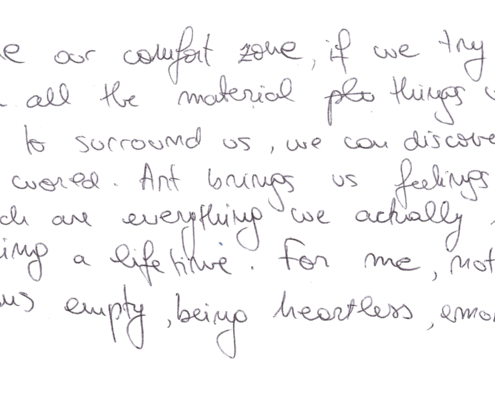 e our comfort zone, if we try
all the material things
to surround us, we can discove
world. Art brings us feelings
ch are everything we actually
ing a life time. For me, not
us empty, being heartless, emo